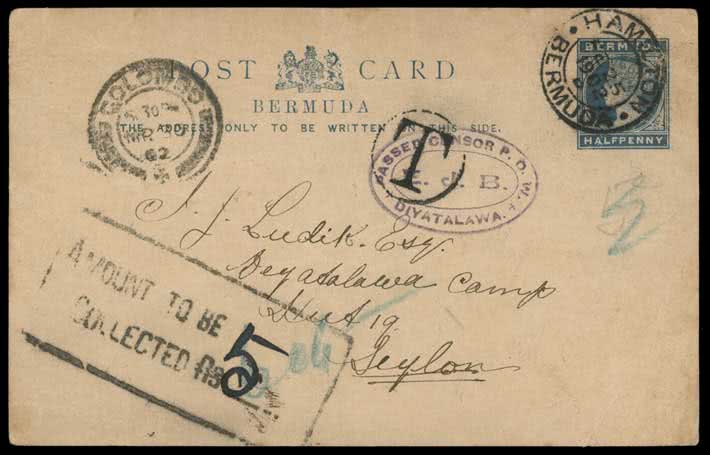 POST CARD
BERMUDA
THE ADDRESS ONLY TO BE WRITTEN ON THIS SIDE.
BERMUDA
HALFPENNY
HAMILTON BERMUDA
COLOMBO
02
T
PASSED CENSOR P. O. W.
DIYATALAWA.
J. J. Ludik. Esq.
Deyatalawa Camp
Hut 19
Ceylon
AMOUNT TO BE
COLLECTED
5